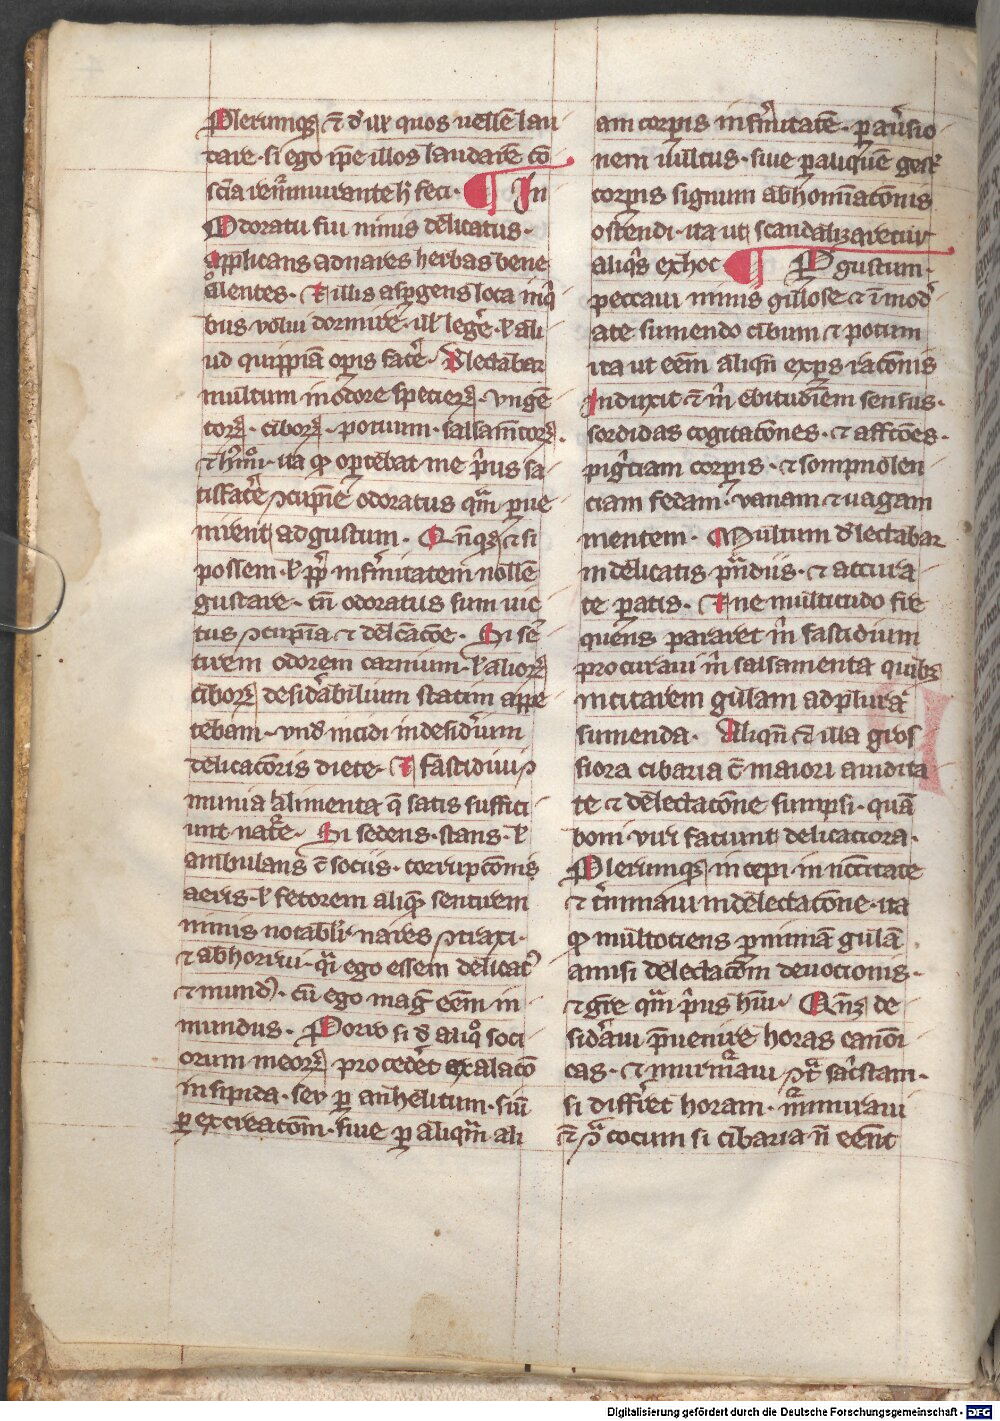 Plerumq₃ et̄ d'ux quos uellē lau
dare · si ego ip̄e illos laudarē cō
sc̄ia remurmurante h̄ feci · ¶ In
Odoratu fui nimis delicatus ·
applicans ad nares herbas bene
olentes · Et illis asꝑgens loca in q̄
bus volui dormire · ul' leg̓e · l' ali
ud quippiā oꝑis fac̓e · Dlectabar
multum in odore specierꝝ · vngē
torꝝ · ciborꝝ · potuum · salsam̄torꝝ ·
et hmōi · ita ꝙ oportebat me p̓us sa
tisfac̓e ꝯcupn̄e odoratus qm̄ ꝑue
nirent ad gustum · Qn̄q₃ et si
possem · l' ꝓpt̓ infirmitatem nollē
gustare · tn̄ odoratus sum uic
tus ꝯcupn̄ia et delc̄acōe · Si sen̄
tirem odorem carnium · l' aliorꝝ
ciborꝝ desid̓abilium statim appe
tebam · vnd̓ incidi in desid̓ium
delicacōris diete · Et fastidiui ꝯ
munia alimenta q̄ satis suffici
unt nat̓e · Si sedens · stans · l'
ambulans c̄ sociis · corrupcōnis
aeris · l' fetorem aliq̄ sentirem
nimis notabl'r nares ꝯtraxi ·
et abhorrui · q̄i ego essem delicat⁹
et mund⁹ · cū ego mag̓ eēm in
mundus · Porro si d̓ aliq̊ soci
orum meorꝝ proced̓et exalacō
insipida · seu ꝑ anhelitum · siu̓
ꝑ excreacōm · siue ꝑ aliqm̄ ali
am corꝑis infirmitatē · ꝑ au̓sio
nem uultus · siue ꝑ aliquē gest̓
corꝑis signum abhomiacōnis
ostendi · ita ut scandalizaretur
aliq̓s ex hoc ¶ P̓ gustum ·
peccaui nimis gulose et īmod̓
ate sumendo cibum et potum
ita ut eēm aliqn̄ exꝑs racōnis
Induxit et̄ m̓ ebitudīem sensus ·
sordidas cogitacōnes · et affc̄ōes ·
pig̓ciam corꝑis · et sompnolen
ciam fedam · vanam et uagam
mentem · Multum d̓lectabar
in delicatis pn̄diis · et accura
te ꝑatis · Et ne multitudo fre
quens pararet m̓ fastidium
procuraui m̓ salsamenta quib₃
incitarem gulam ad plura
sumenda · Aliqn̄ et̄ illa gros
siora cibaria c̄ maiori auidita
te et delectacōne sumpsi · quā
boni · viri faciunt delicaciora ·
Plerumq₃ incepi in nc̄c̄itate
et t̓minaui in delectacōne · ita
ꝙ multociens ꝑ nimiā gulā
amisi delectacōm deuocionis ·
et gr̄e qm̄ p̓us hūi · Qn̄₃ de
sid̓aui p̄uenire horas canōi
cas · et murm̓aui ꝯt̓ sac̓stam ·
si diffr̓et horam · m̓muraui
et̄ ꝯ̓ cocum si cibaria n̄ eēnt
Digitalisierung gefördert durch die Deutsche Forschungsgemeinschaft - DFG